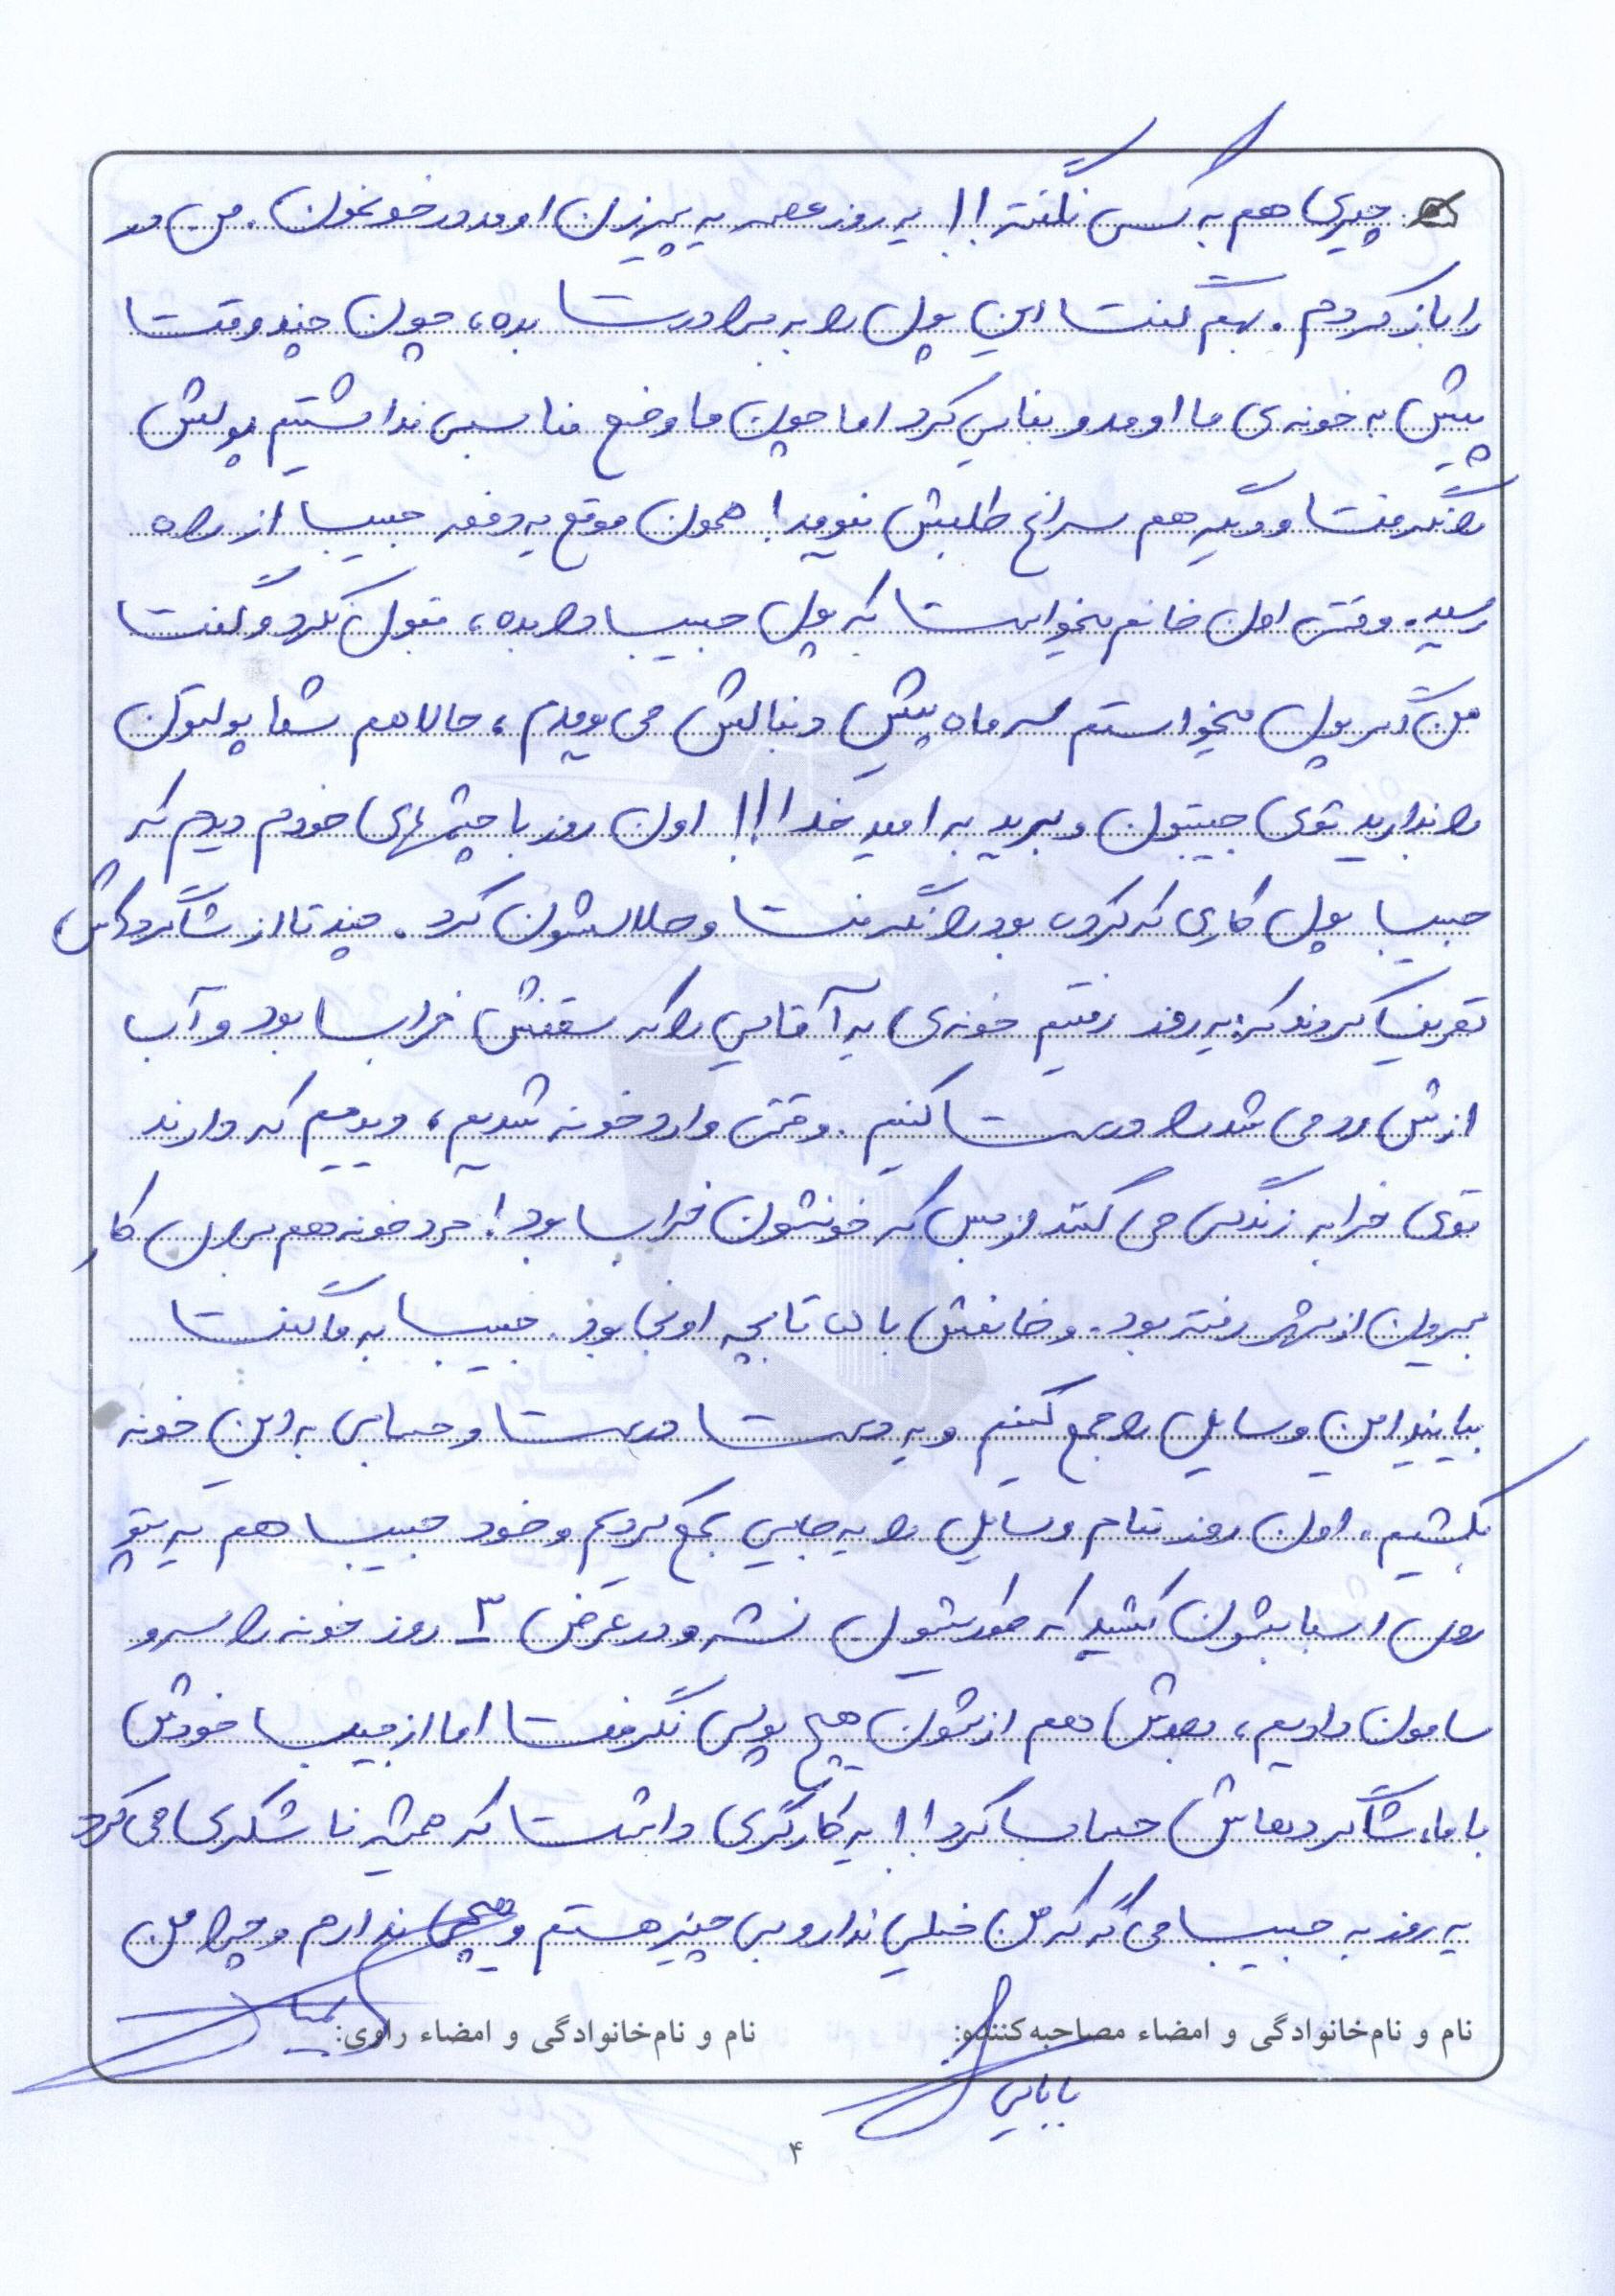 چیزی هم به کسی نگفته!! یه روز عصر یه پیرزن اومد در خونمون. من در
را باز کردم. بهم گفت این پول را به برادرت بده، چون چند وقت
پیش به خونه‌ی ما اومد و بنایی کرد اما چون ما وضع مناسبی نداشتیم پولش
را نگرفت و دیگه هم سراغ طلبش نیومد! همون موقع یه دفعه حبیب از راه
رسید. وقتی اون خانم میخواست که پول حبیب را بده، قبول نکرد و گفت
من اگر پول میخواستم سر ماه پیش دنبالش می یومدم، حالا هم شما پولتون
را بذارید توی جیبتون و برید به امید خدا!!! اون روز با چشمهای خودم دیدم که
حبیب پول کاری که کرده بود را نگرفت و حلالشون کرد. چند تا از شاگرداش
تعریف کردند که: یه روز رفتیم خونه‌ی یه آقایی را که سقفش خراب بود و آب
ازش رد می شد را درست کنیم. وقتی وارد خونه شدیم، دیدیم که دارند
توی خرابه زندگی می کنند از بس که خونشون خراب بود! مرد خونه هم برای کار
بیرون از شهر رفته بود. و خانمش با تا بچه اونجا بود. حبیب به ما گفت
بیایید این وسایل را جمع کنیم و یه دست درست و حسابی به این خونه
بکشیم. اون روز تمام وسایل را یه جایی جمع کردیم و خود حبیب هم یه پتو
روی اسبابشون کشید که طوریشون نشه و در عرض ۳ روز خونه را سر و
سامون دادیم، بعدش هم ازشون هیچ پولی نگرفت اما از جیب خودش
با ما، شاگردهاش حساب کرد!! یه کارگری داشت که همیشه ناشکری می کرد
یه روز به حبیب می گه که من خیلی ندار و بی چیز هستم و هیچی ندارم و چرا من
نام و نام‌خانوادگی و امضاء مصاحبه‌کننده:
نام و نام‌خانوادگی و امضاء راوی:
بابایی
۴